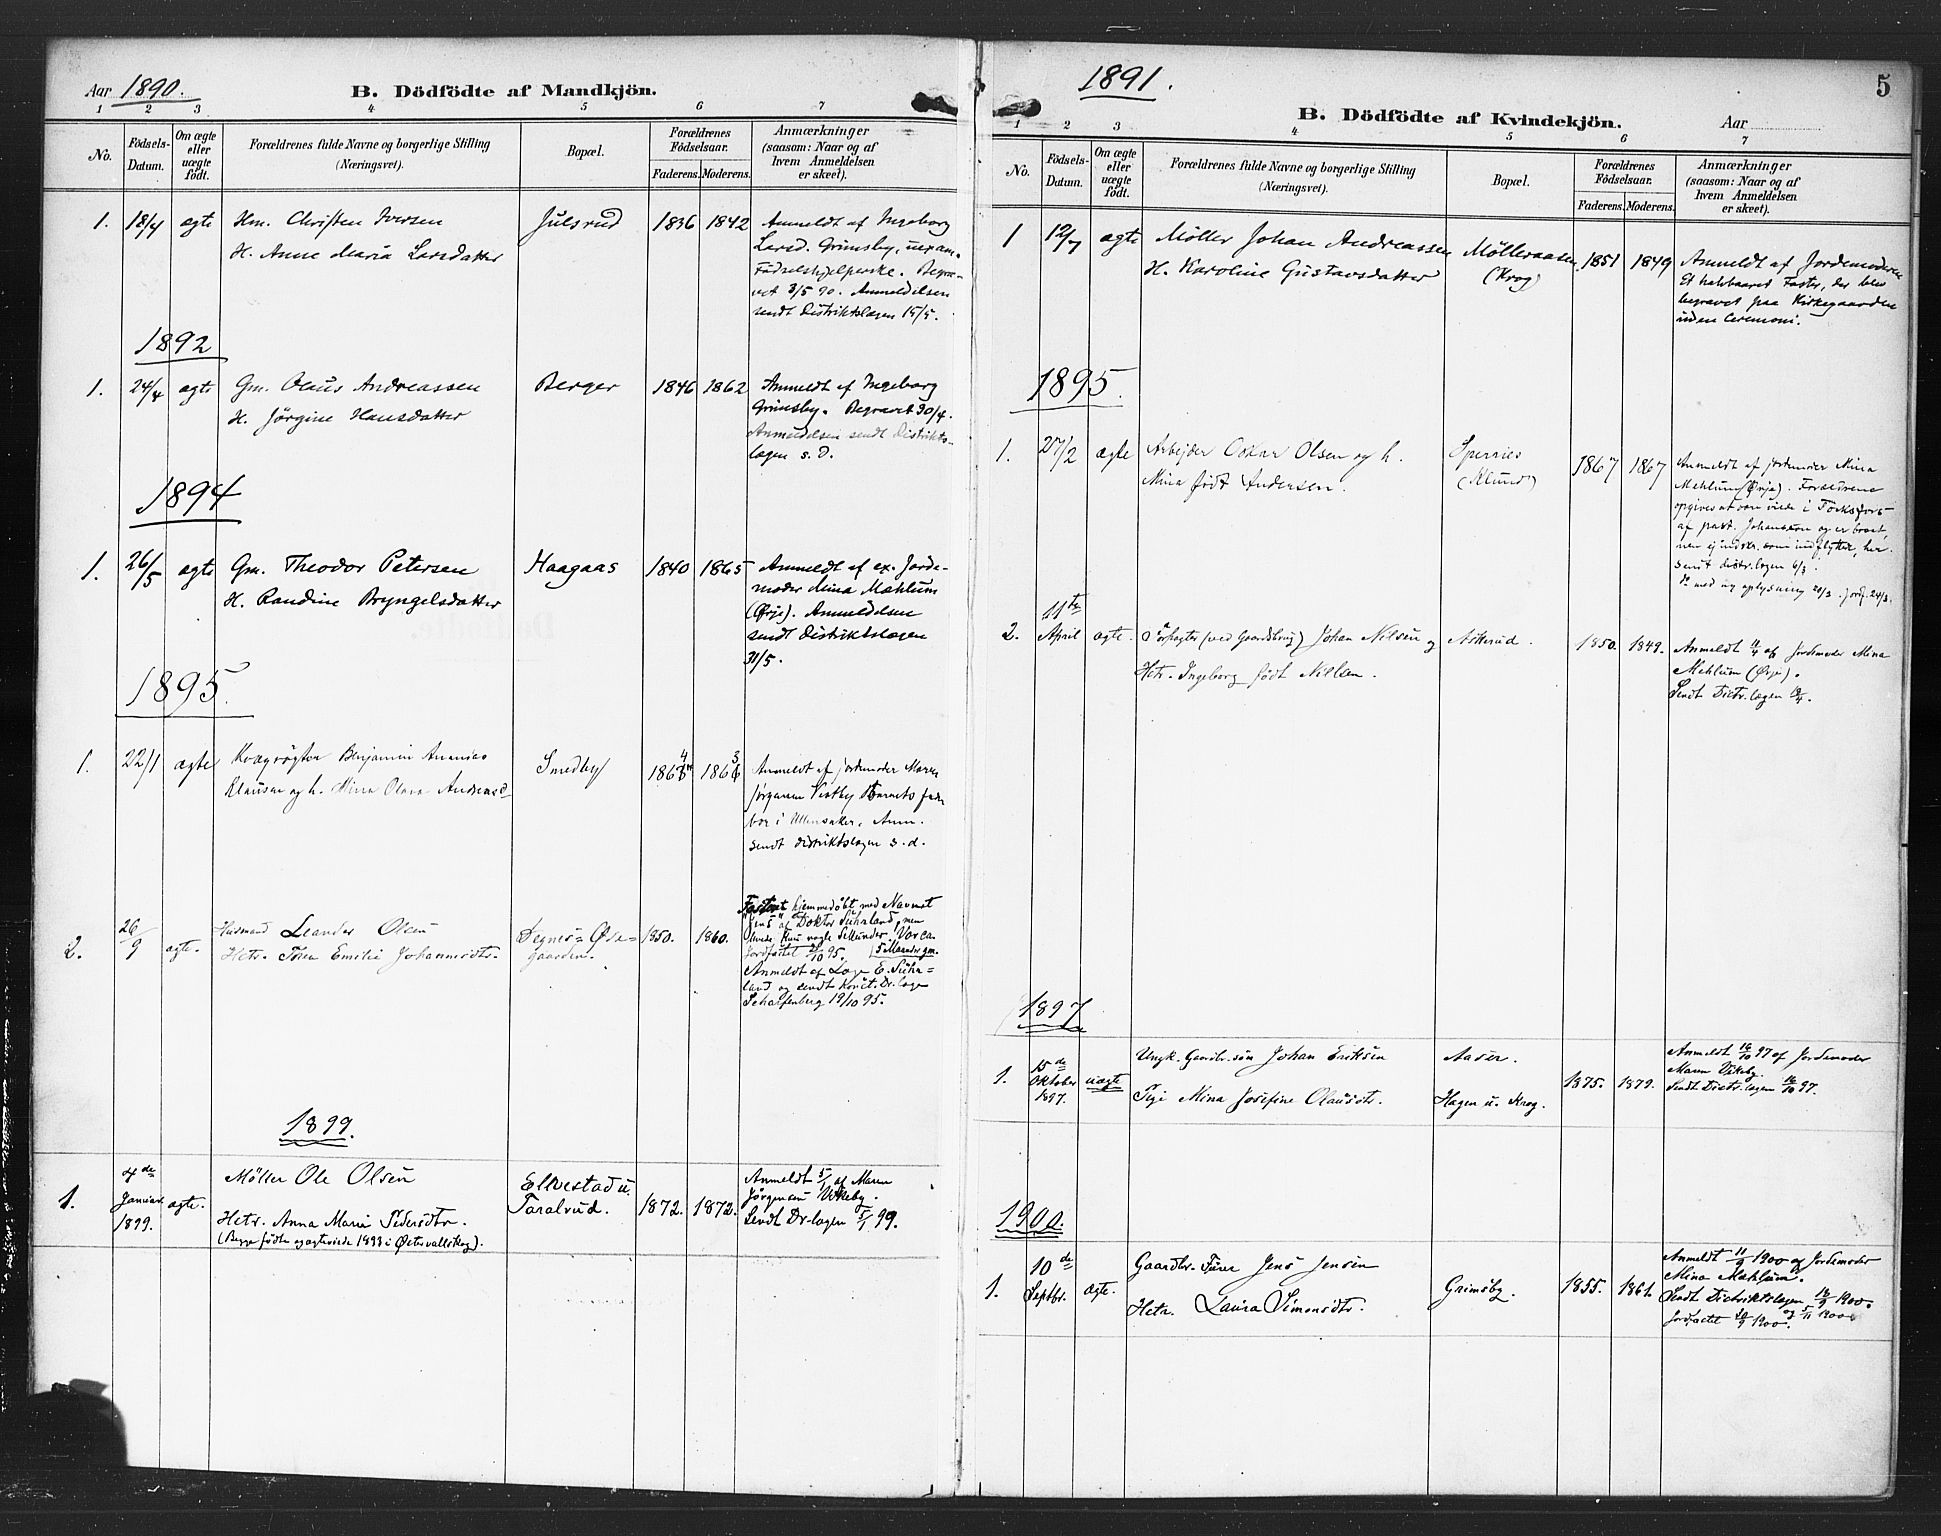 Aar 1890.
B. Dödfödte af Mandkjön.
1 2 3 4 5 6 7
No. Födsels-Datum. Om ægte eller uægte födt. Forældrenes fulde Navne og borgerlige Stilling (Næringsvei). Bopæl. Forældrenes Födselsaar. Faderens. Moderens. Anmærkninger (saasom: Naar og af hvem Anmeldelsen er skeet).
1. 18/4 ægte Hm. Christen Iversen Julsrud 1836 1842 Anmeldt af Ingeborg
H. Anne Maria Larsdatter Larsd. Grimsby, uexam.
Fødselshjelperske. Begra-
vet 3/5 90. Anmeldelsen
sendt Distriktslægen 15/5.
1892
1. 24/4 ægte Gm. Olaus Andreassen Berger 1846 1862 Anmeldt af Ingeborg
H. Jørgine Hansdatter Grimsby. Begravet 30/4.
Anmeldelsen sendt Distrikts-
lægen s. D.
1894
1. 26/5 ægte Gm. Theodor Petersen Haagaas 1840 1865 Anmeldt af ex. Jorde-
H. Randine Bryngelsdatter moder Mina Mæhlum
(Ørje). Anmeldelsen
sendt Distriktslægen
31/5.
1895.
1. 22/1 ægte Kvægrøgter Benjamin Smedby 1864 1863 Anmeldt af jordemoder Maren
Klausen og h. Mina Olava Andreasd Jørgensen Vikby Barnets fader
bor i Ullensaker. Anm.
sendt distriktslægen s. d.
2. 26/9 ægte. Husmand Leander Olsen Øde- 1850. 1860. Fosteret hjemmedøbt med Navnet
Hstr. Emilie Johannesdtr. gaarden. "Jens" af Doktor Suhrland, men
levede kun nogle Sekunder.
Jordfæstet /10 95. 5 Maaneder gm.
Anmeldt af Læge E. Suhr-
land og sendt Konst. Dr. læge
Scharfenberg 19/10 95.
1899.
1. 4de Januar 1899. ægte. Møller Ole Olsen Ellvestad u. Taralrud. 1872. 1872. Anmeldt 5/1 af Maren
Hstr. Anna Marie Pedersdtr. Jørgensen Vikeby.
(Begge fødte og ægteviede 1898 i Østervallskog). Sendt Dr-lægen 5/1 99.
1891.
5
B. Dödfödte af Kvindekjön. Aar
1 2 3 4 5 6 7
No. Födsels-Datum. Om ægte eller uægte födt. Forældrenes fulde Navne og borgerlige Stilling (Næringsvei). Bopæl. Forældrenes Födselsaar. Faderens. Moderens. Anmærkninger (saasom: Naar og af hvem Anmeldelsen er skeet).
1 12/7 ægte Møller Johan Andreassen Mølleraasen 1851 1849 Anmeldt af Jordemoderen
H. Karoline Gustavsdatter (Krog) Et halvbaaret Foster, der blev
begravet paa Kirkegaarden
uden Ceremoni.
1895.
1. 27/2 ægte Arbejder Oskar Olsen og h. 1867 1867 Anmeldt af jordemoder Mina
Mina født Andersen. (Klund) Mehlum (Ørje). Forældrene
opgives at være viede i
af past. Johansson og er
ej indskr. som indflyttede, her.
sendt distr.lægen 6/3
do med ny oplysning 20/3. jordf. 24/3.
2. 11te April ægte. Forpagter (ved Gaardsbrug) Johan Nilsen og Askerud. 1850. 1849. Anmeldt 11/4 af Jordemoder Mina
Hstr. Ingeborg født Nilsen. Mehlum (Ørje).
Sendt Distr. lægen /4.
1897
1. 15de Oktober 1897. uægte Ungk. Gaardbr. søn Johan Eriksen Aaser. 1875. 1879. Anmeldt 16/10 97 af Jordemoder
Pige Mina Josefine Olausdtr. Hagen u. Krog. Maren Vikeby.
Sendt Distr. lægen 16/10 97.
1900.
1. 10de Septbr. ægte. Gaardbr. Jens Jensen Grimsby. 1855. 1861. Anmeldt 11/9 1900 af Jordemoder
Hstr. Laura Simensdtr. Mina Mæhlum.
Sendt Distriktslægen /9 1900.
Jordfæstet /9 1900. og 5/11 1900.